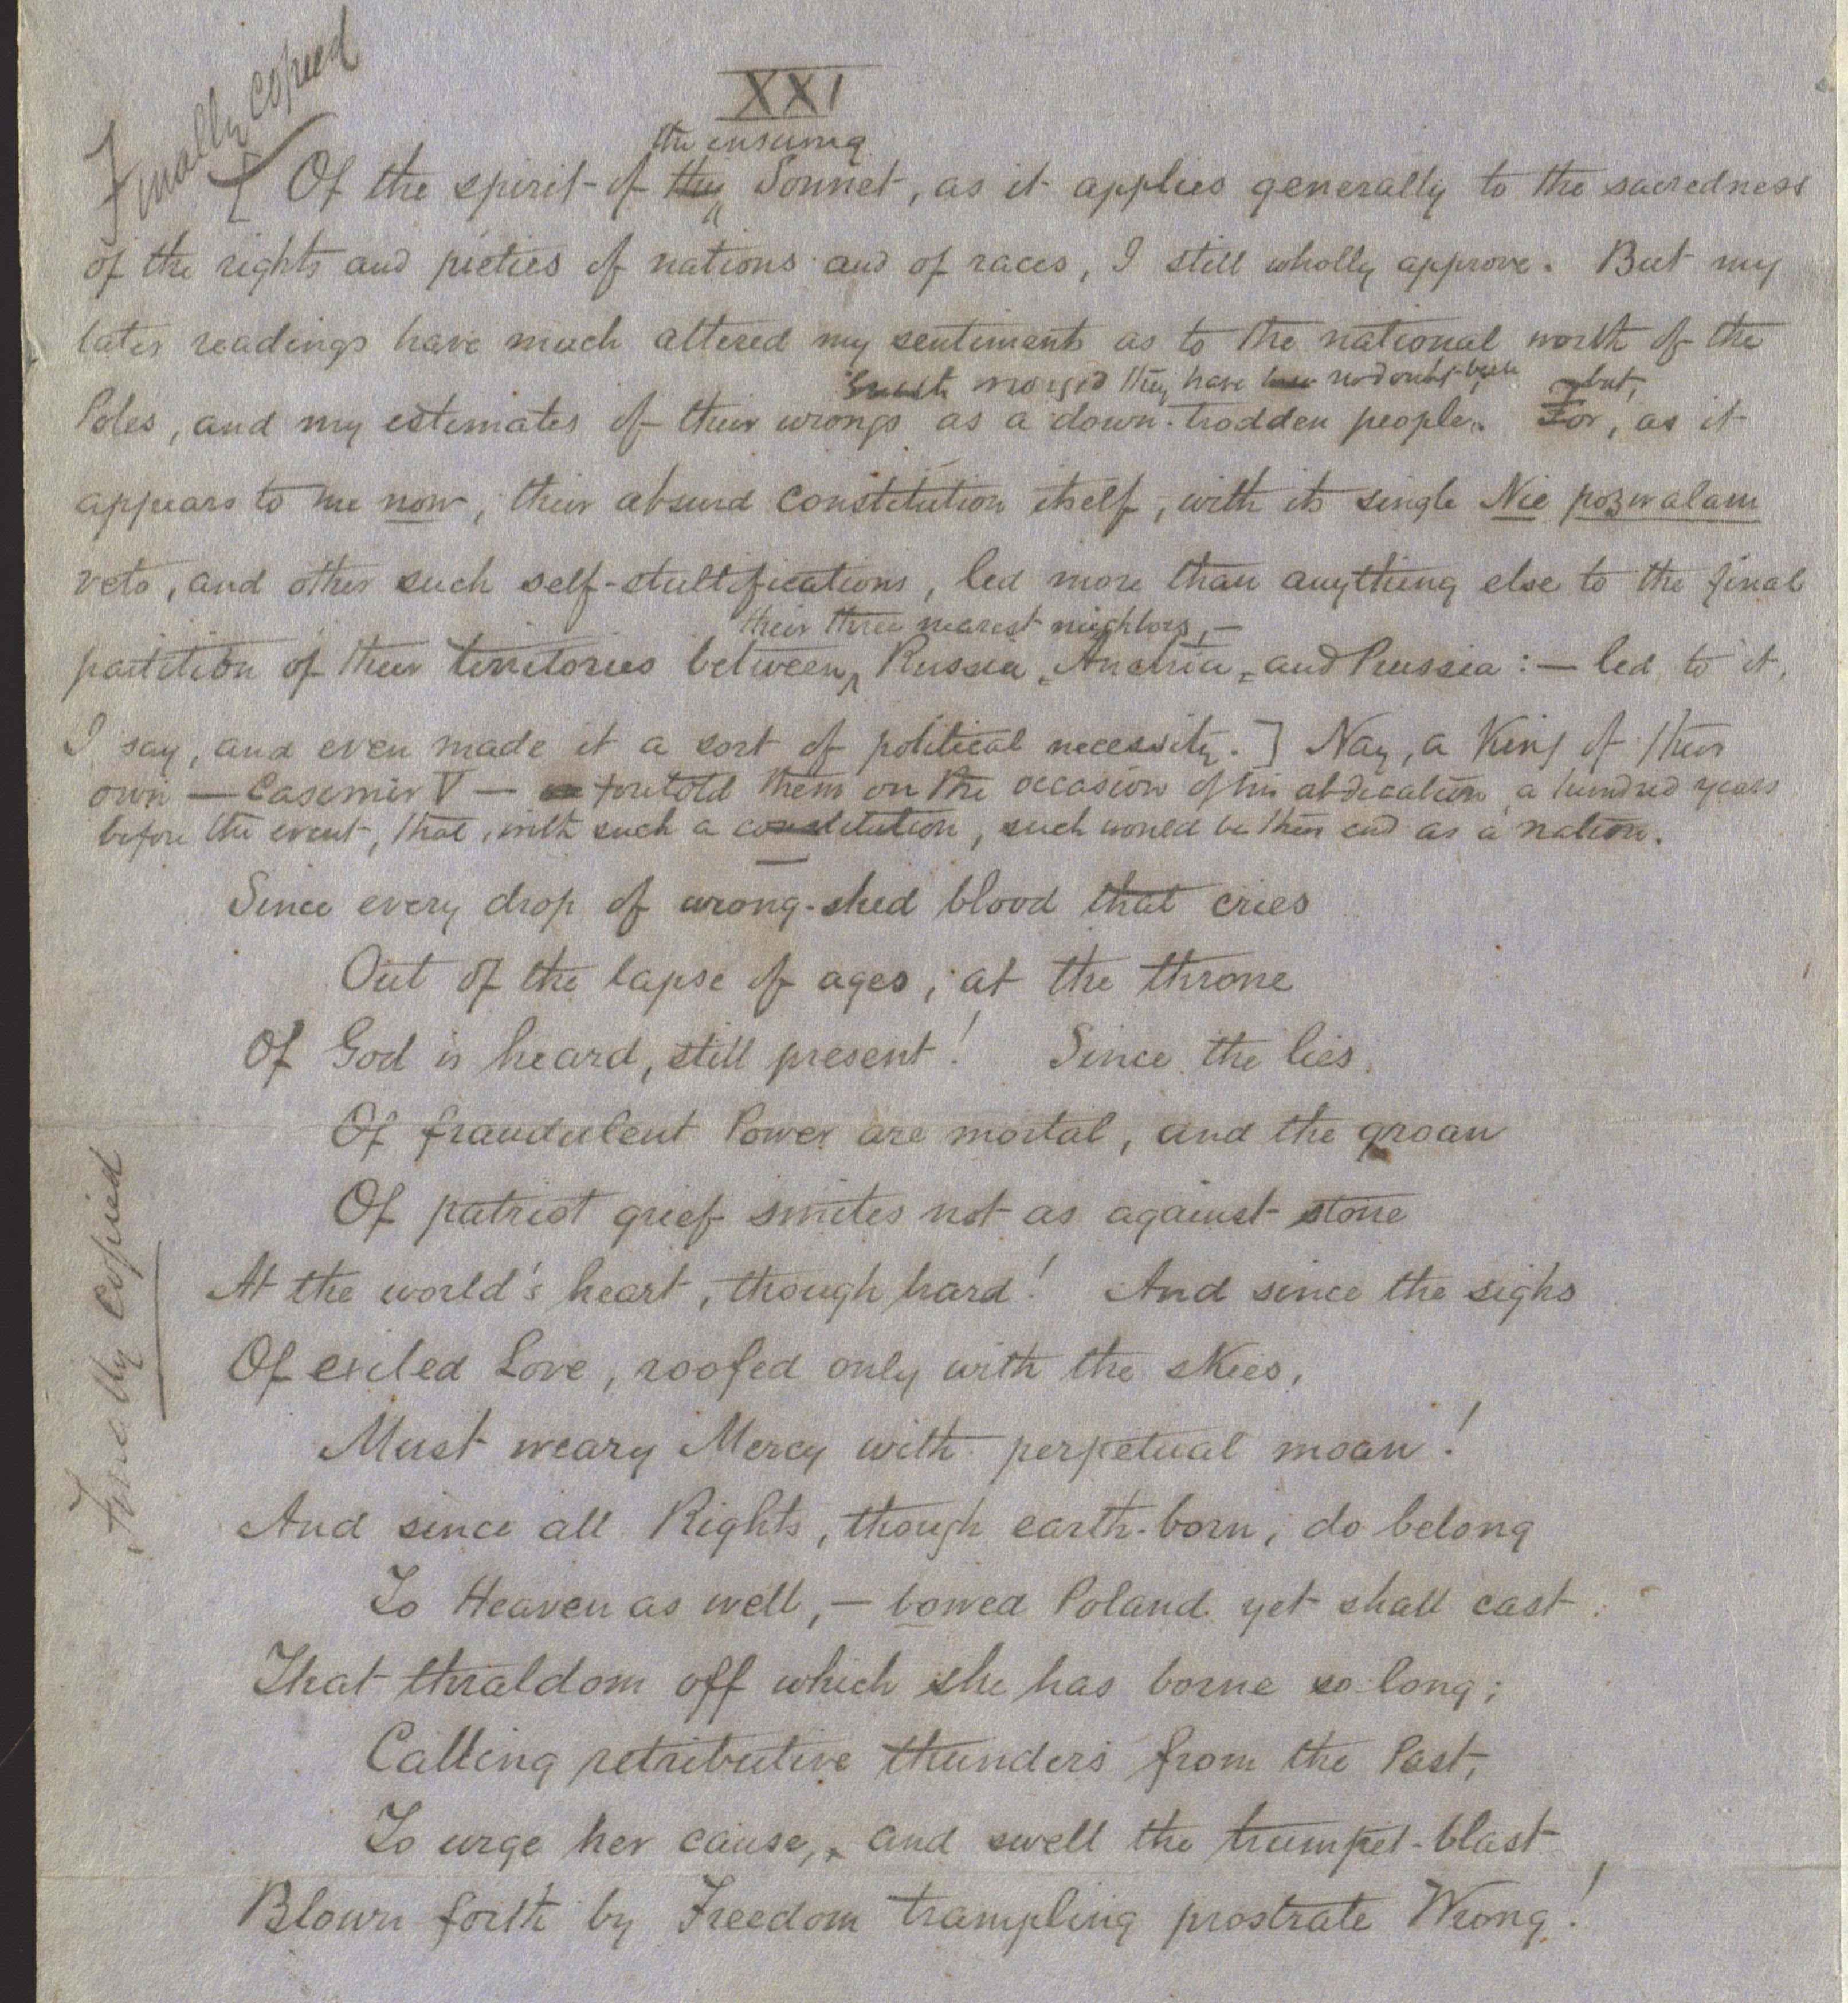 Finally copied
XXI
the ensuing
[ Of the spirit of this Sonnet, as it applies generally to the sacredness
of the rights and pieties of nations and of races, I still wholly approve. But my
later readings have much altered my sentiments as to the national worth of the
wronged they have no doubt been but,
Poles, and my estimates of their wrongs as a down-trodden people. For, as it
appears to me now, their absurd constitution itself, with its single Nie pozwalam
veto, and other such self-stultifications, led more than anything else to the final
their three nearest neighbors, —
partition of their territories between Russia, Austria, and Prussia : — led to it,
I say, and even made it a sort of political necessity. ] Nay, a King of their
own — Casimir V — foretold them on the occasion of his abdication a hundred years
before the event, that, with such a constitution, such would be their end as a nation.
Since every drop of wrong-shed blood that cries
Out of the lapse of ages, at the throne
Of God is heard, still present! Since the lies
Of fraudulent Power are mortal, and the groan
Of patriot grief smites not as against stone
At the world's heart, though hard! And since the sighs
Of exiled Love, roofed only with the skies,
Must weary Mercy with perpetual moan!
And since all Rights, though earth-born, do belong
To Heaven as well, — bowed Poland yet shall cast
That thraldom off which she has borne so long;
Calling retributive thunders from the Past,
To urge her cause, and swell the trumpet-blast
Blown forth by Freedom trampling prostrate Wrong!
Finally Copied